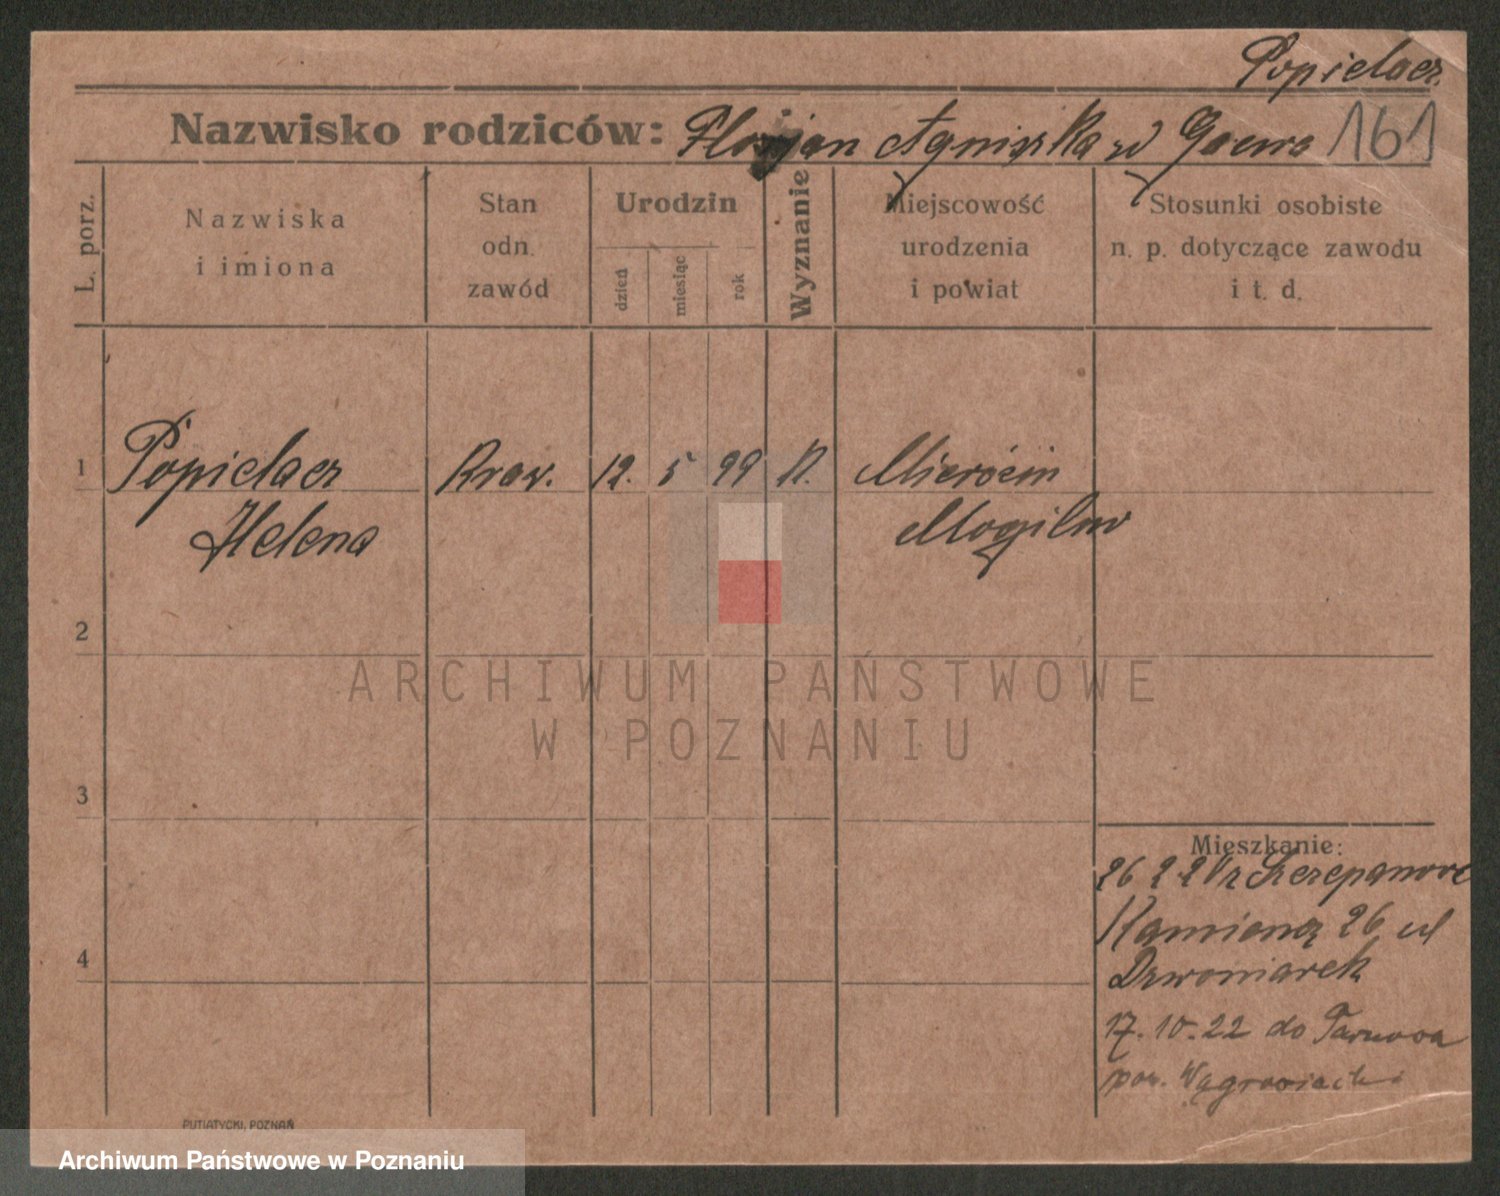 Popielarz
Nazwisko rodziców: Florjan Agnieszka zd 161
L. porz.
Nazwiska
i imiona
Stan
odn.
zawód
Urodzin
dzień
miesiąc
rok
Wyznanie
Miejscowość
urodzenia
i powiat
Stosunki osobiste
n. p. dotyczące zawodu
i t. d.
1 Popielarz Kraw. 12. 5 99 K. Mierocin
Helena Mogilno
2
3
4
Mieszkanie:
26 2 22 z Szczepanowo
26 ul
Dzwoniarek
17. 10. 22 do Tarnowa
pow. Wągrowiecki
PUTIATYCKI, POZNAŃ
ARCHIWUM PAŃSTWOWE
W POZNANIU
Archiwum Państwowe w Poznaniu